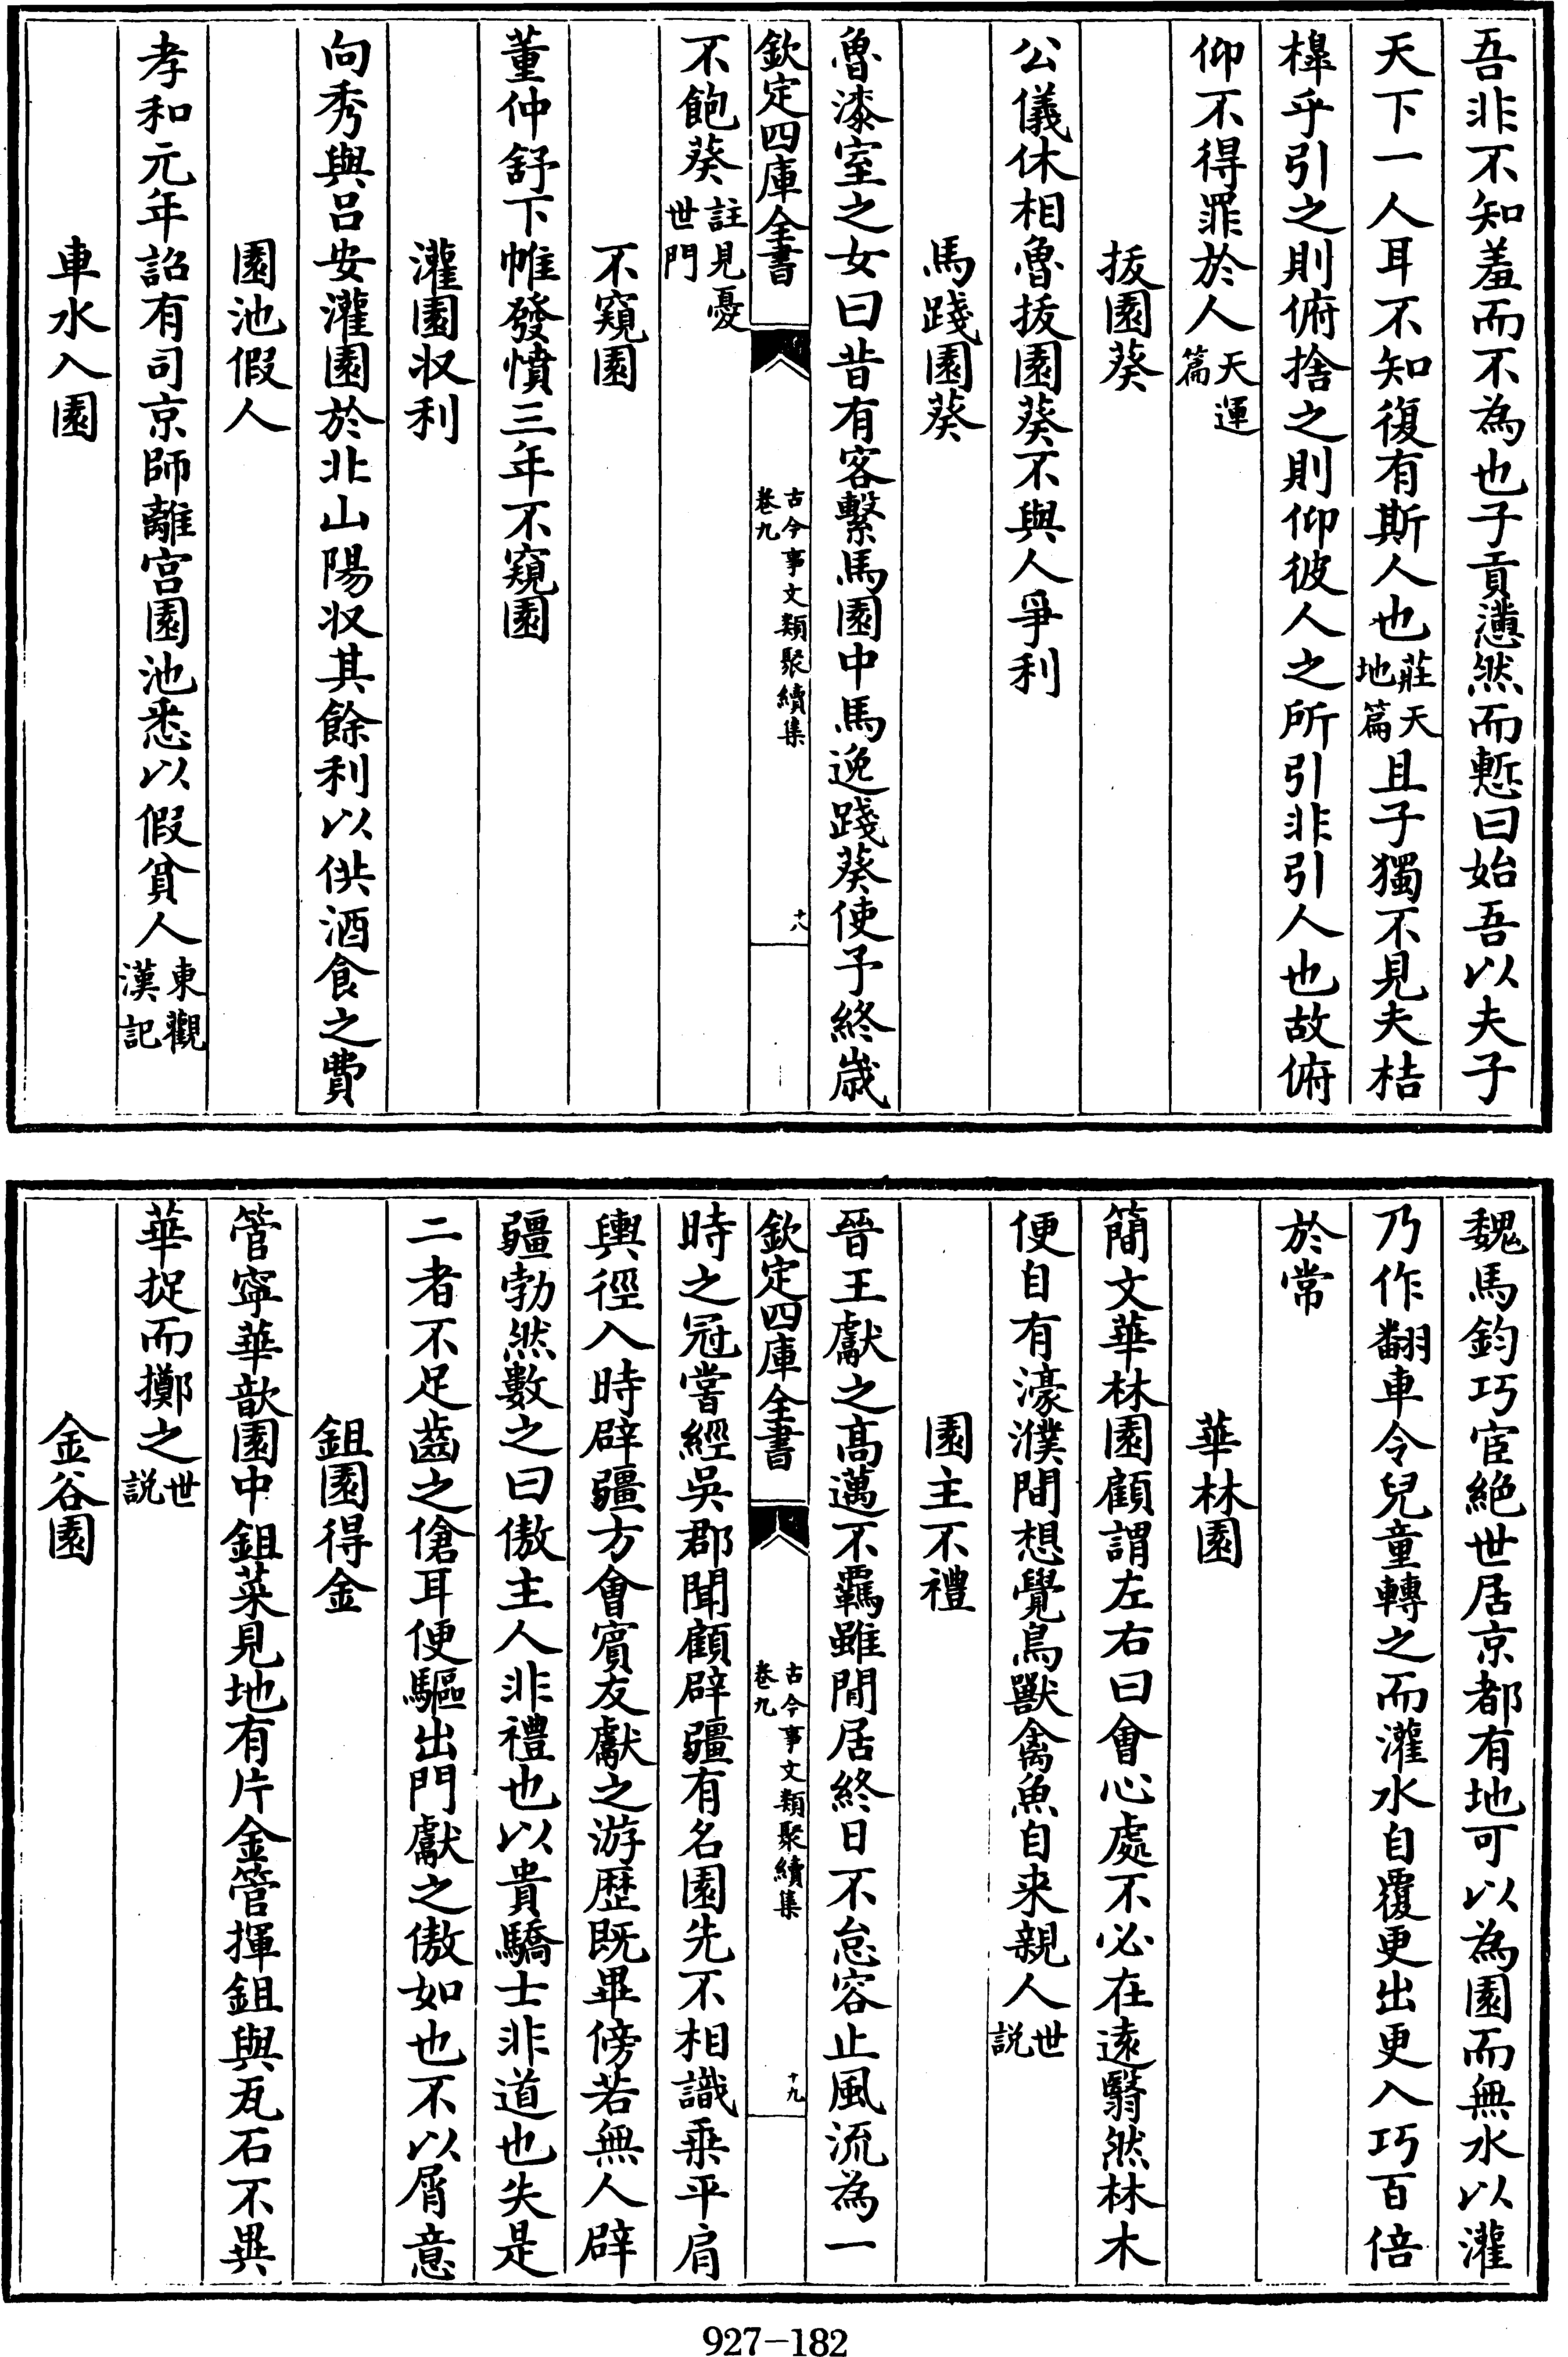 吾非不知羞而不為也子貢懣然而慙曰始吾以夫子
天下一人耳不知復有斯人也莊天地篇且子獨不見夫桔
槔乎引之則俯捨之則仰彼人之所引非引人也故俯
仰不得罪於人天運篇
拔園葵
公儀休相魯拔園葵不與人爭利
馬踐園葵
魯漆室之女曰昔有客繫馬園中馬逸踐葵使予終歲
欽定四庫全書
古今事文類聚續集
卷九
十八
不飽葵註見憂世門
不窺園
董仲舒下帷發憤三年不窺園
灌園収利
向秀與呂安灌園於北山陽収其餘利以供酒食之費
園池假人
孝和元年詔有司京師離宮園池悉以假貧人東觀漢記
車水入園
魏馬鈞巧宦絕世居京都有地可以為園而無水以灌
乃作翻車令兒童轉之而灌水自覆更出更入巧百倍
於常
華林園
簡文華林園顧謂左右曰會心處不必在遠翳然林木
便自有濠濮間想覺鳥獸禽魚自来親人世説
園主不禮
晉王獻之高邁不羈雖閒居終日不怠容止風流為一
欽定四庫全書
古今事文類聚續集
卷九
十九
時之冠嘗經吳郡聞顧辟疆有名園先不相識乘平肩
輿徑入時辟疆方會賓友獻之游歷既畢傍若無人辟
疆勃然數之曰傲主人非禮也以貴驕士非道也失是
二者不足齒之傖耳便驅出門獻之傲如也不以屑意
鉏園得金
管寧華歆園中鉏菜見地有片金管揮鉏與瓦石不異
華捉而擲之世説
金谷園
927-182